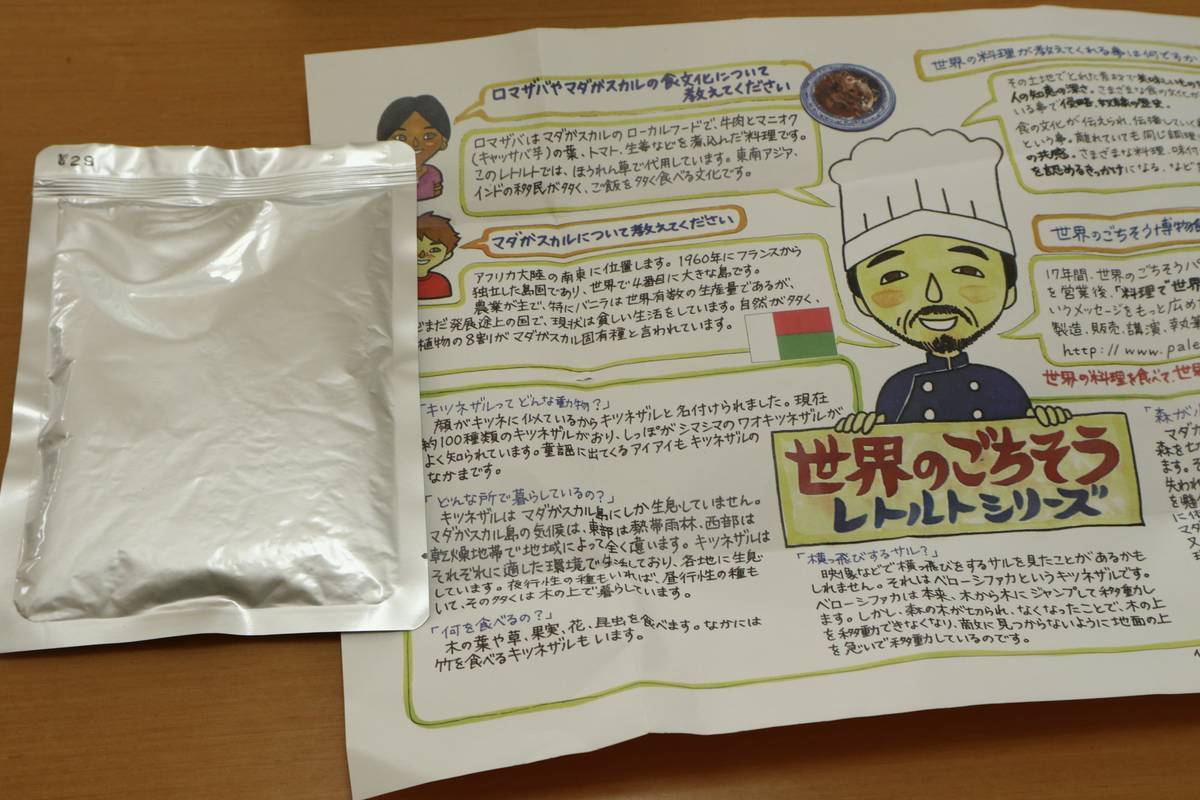 ロマザバやマダガスカルの食文化について
教えてください
ロマザバはマダガスカルのローカルフードで、牛肉とマニオク
(キャッサバ芋)の葉、トマト、生姜などを煮込んだ料理です。
このレトルトでは、ほうれん草で代用しています。東南アジア、
インドの移民が多く、ご飯を多く食べる文化です。
マダガスカルについて教えてください
アフリカ大陸の南東に位置します。1960年にフランスから
独立した島国であり、世界で4番目に大きな島です。
農業が主で、特にバニラは世界有数の生産量であるが、
まだ発展途上の国で、現状は貧しい生活をしています。自然が多く、
植物の8割がマダガスカル固有種と言われています。
「キツネザルってどんな動物?」
顔がキツネに似ているからキツネザルと名付けられました。現在
約100種類のキツネザルがおり、しっぽがシマシマのワオキツネザルが
よく知られています。童謡に出てくるアイアイもキツネザルの
なかまです。
「どんな所で暮らしているの?」
キツネザルはマダガスカル島にしか生息していません。
マダガスカル島の気候は、東部は熱帯雨林、西部は
乾燥地帯で地域によって全く違います。キツネザルは
それぞれに適した環境で生活しており、各地に生息
しています。夜行性の種もいれば、昼行性の種も
いて、その多くは木の上で暮らしています。
「何を食べるの?」
木の葉や草、果実、花、昆虫を食べます。なかには
竹を食べるキツネザルもいます。
世界の料理が教えてくれる事は何ですか
その土地でとれた食材で美味しいもの
人の知恵の深さ。さまざまな食の文化が
いる事で侵略、奴隷の歴史。
食の文化が伝えられ、伝播していく
という事。離れていても同じ調理
の共感。さまざまな料理、味付
を認めるきっかけになる、など
世界のごちそう博物館
17年間、世界のごちそうパ
を営業後、「料理で世界
いうメッセージをもっと広め
製造、販売、講演、執筆
http://www.pale
世界の料理を食べて、世界
世界のごちそう
レトルトシリーズ
「横っ飛びするサル?」
映像などで横っ飛びをするサルを見たことがあるかも
しれません。それはベローシファカというキツネザルです。
ベローシファカは本来、木から木にジャンプして移動し
ます。しかし、森の木が切られ、なくなったことで、木の上
を移動できなくなり、敵に見つからないように地面の上
を急いで移動しているのです。
「森が
マダガ
森を
ます。そ
失われ
を懸